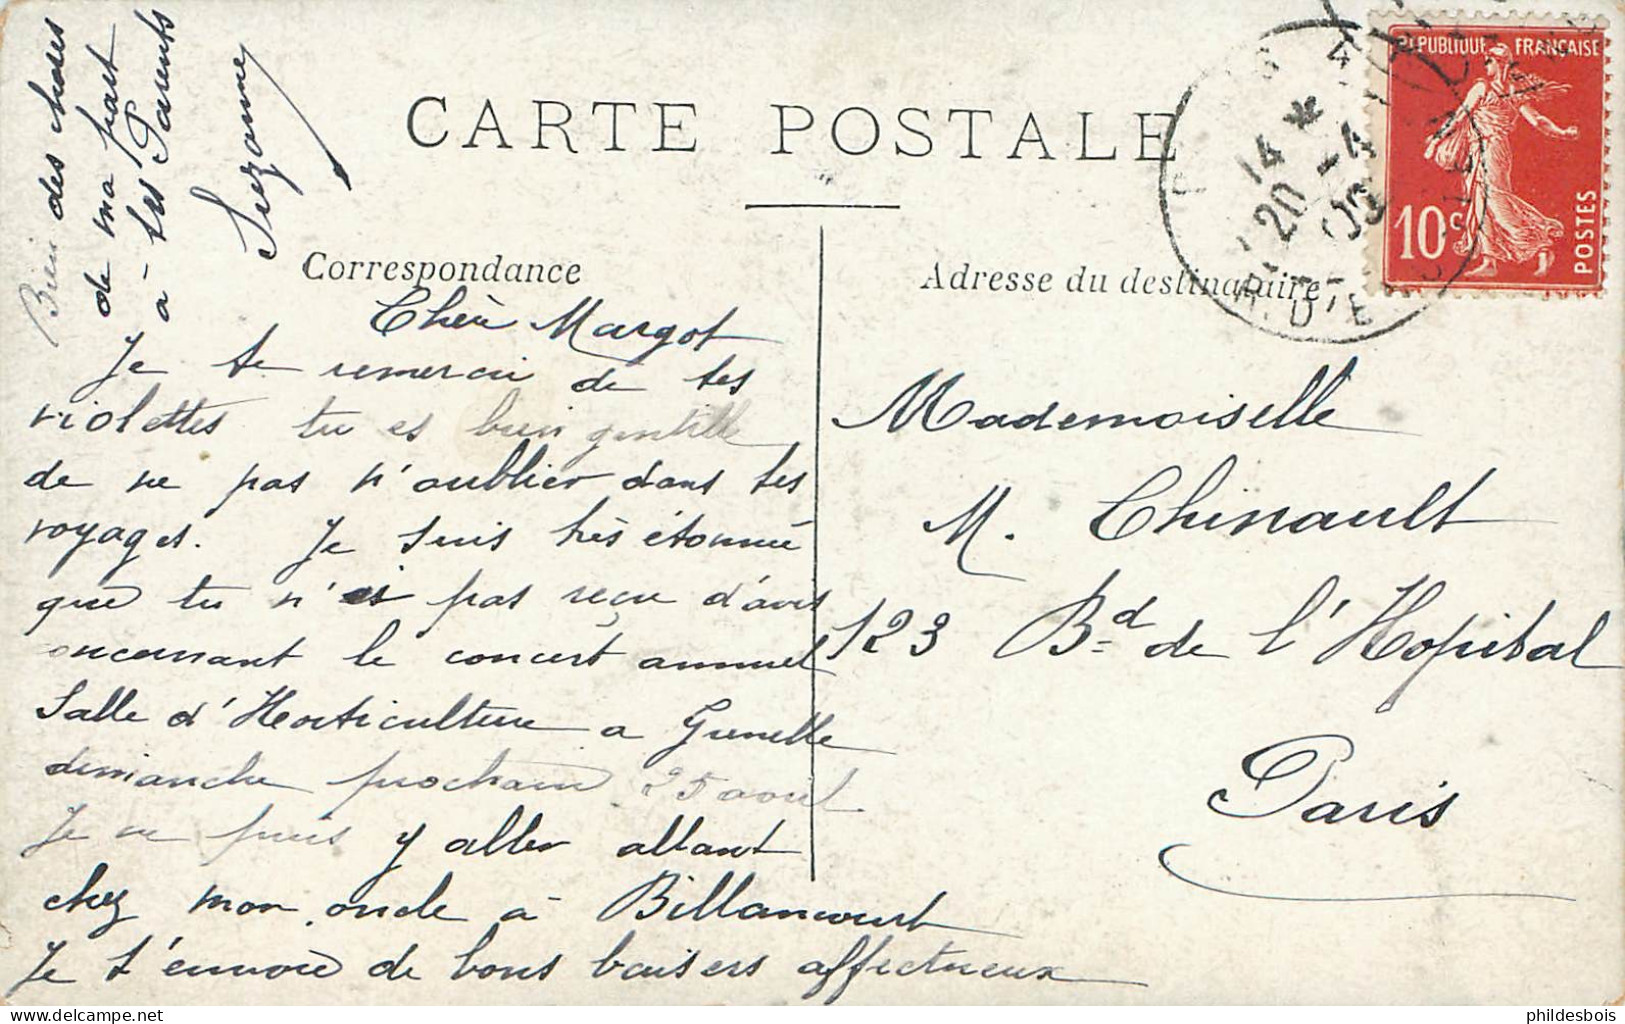 CARTE POSTALE
Correspondance
Adresse du destinataire
RÉPUBLIQUE FRANÇAISE
10c
POSTES
14 *
20 -4
09
Chère Margot
Je te remercie de tes
violettes tu es bien gentille
de ne pas n'oublier dans tes
voyages. Je suis très étonnée
que tu n'ai pas reçu d'avis
concernant le concert annuel
Salle d'Horticulture a Grenelle
dimanche prochain 25 aout
Je ne puis y aller allant
chez mon oncle à Billancourt
Je t'envoie de bons baisers affectueux
Bien des choses
de ma part
à tes Parents
Suzanne
Mademoiselle
M. Chinault
123 Bd de l'Hopital
Paris
delcampe.net
phildesbois